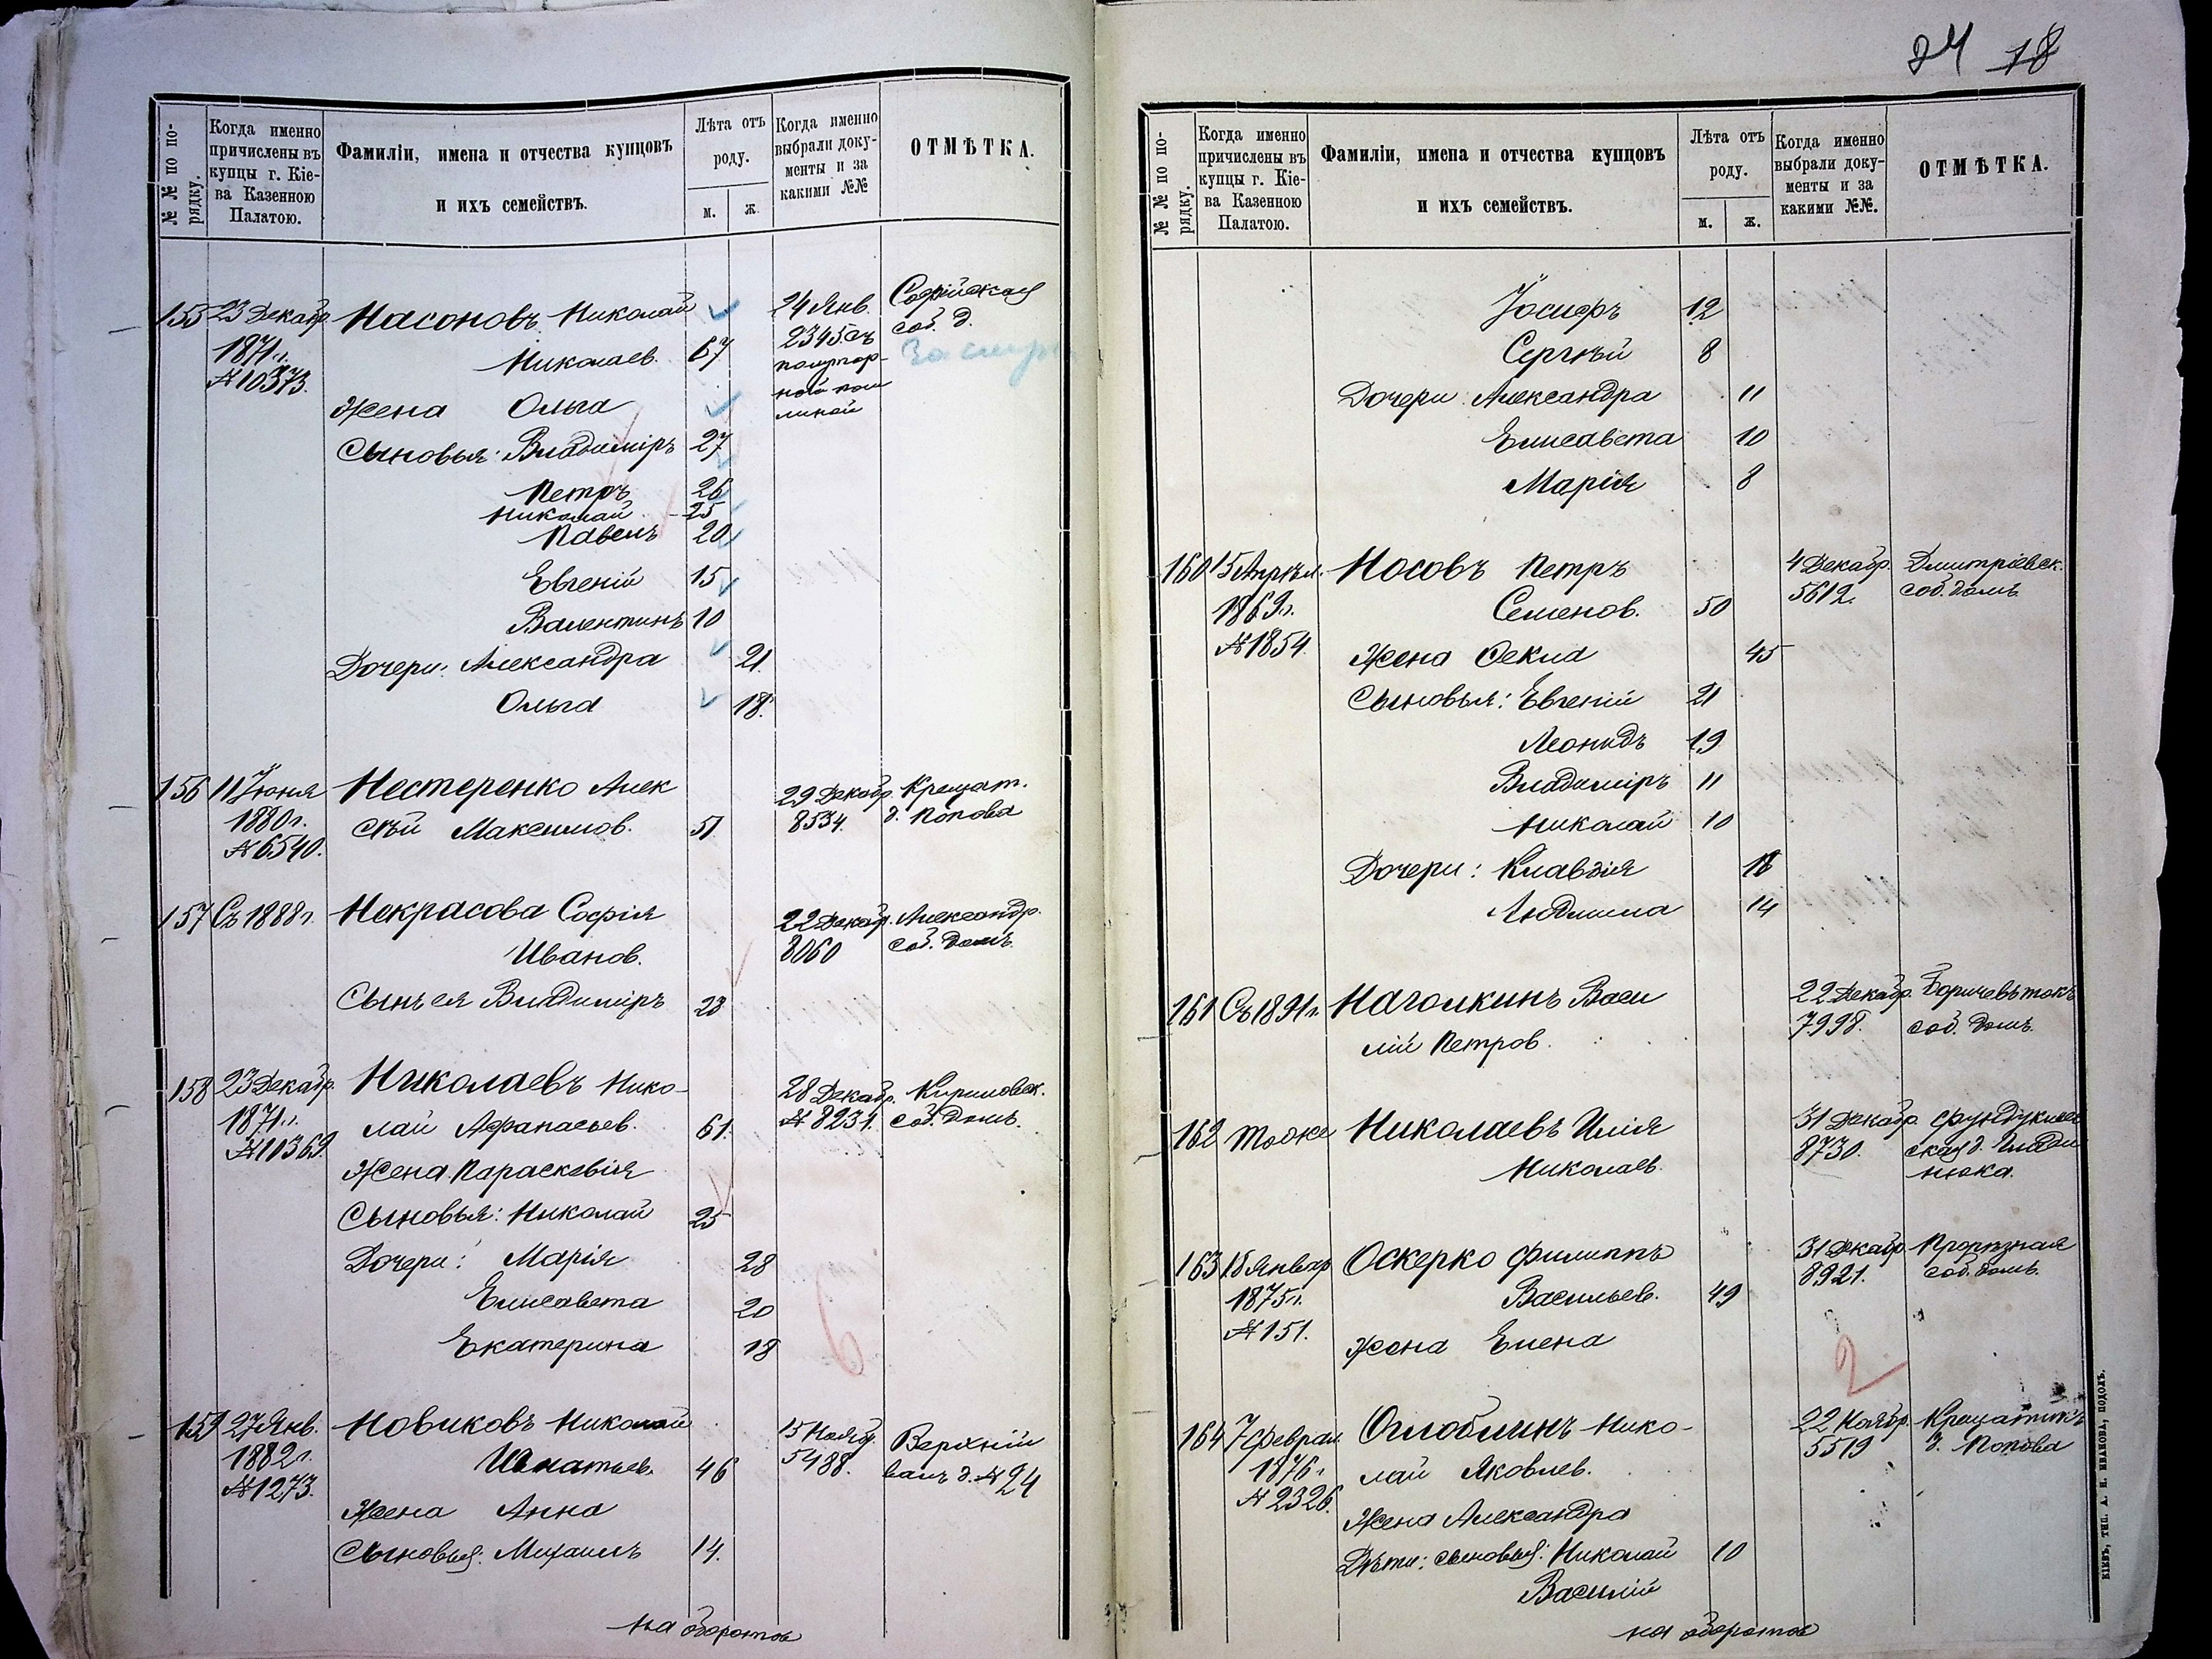 24 18
№ № по по-
рядку.
Когда именно
причислены въ
купцы г. Кіе-
ва Казенною
Палатою.
Фамиліи, имена и отчества купцовъ
и ихъ семействъ.
Лѣта отъ
роду.
м.
ж.
Когда именно
выбрали доку-
менты и за
какими №№
ОТМѢТКА.
155 23 Декабр. Насоновъ Николай 24 Янв. Софійская
1871 г. Николаев. 67 2345 съ соб. д.
№ 10373.
Жена Ольга
Сыновья: Владиміръ 27
Петръ 26
Николай 25
Павелъ 20
Евгеній 15
Валентинъ 10
Дочери: Александра 21.
Ольга 18.
156 11 Іюня Нестеренко Алек 29 Декабр. Крещат.
1880 г. сѣй Максимов. 51. 8534. д. Попова
№ 6540.
157 Съ 1888 г. Некрасова Софія 22 Декабр. Александр.
Иванов. 8060 соб. домъ.
Сынъ ея Владиміръ 23
158 23 Декабр. Николаевъ Нико- 28 Декабр. Кириловск.
1871 г. лай Афанасьев. 61. № 8231. соб. домъ.
№ 10369.
Жена Параскевія
Сыновья: Николай 25
Дочери: Марія 28
Елисавета 20
Екатерина 18
159 27 Янв. Новиковъ Николай 15 Ноябр. Верхній
1882 г. Игнатьев. 46 5488. валъ д. № 24
№ 1273.
Жена Анна
Сыновья: Михаилъ 14.
на оборотѣ
№ № по по-
рядку.
Когда именно
причислены въ
купцы г. Кіе-
ва Казенною
Палатою.
Фамиліи, имена и отчества купцовъ
и ихъ семействъ.
Лѣта отъ
роду.
м.
ж.
Когда именно
выбрали доку-
менты и за
какими №№.
ОТМѢТКА.
Іосифъ 12
Сергѣй 8
Дочери Александра 11
Елисавета 10
Марія 8
160 15 Апрѣл. Носовъ Петръ 4 Декабр. Дмитріевск.
1869 г. Семенов. 50 5612. соб. домъ
№ 1854. Жена Фекла 45
Сыновья: Евгеній 21
Леонидъ 19
Владиміръ 11
Николай 10
Дочери: Клавдія 18
Людмила 14
161 Съ 1891 г. Наголкинъ Васи 22 Декабр. Боричевъ токъ
лій Петров. 7998. соб. домъ.
162 Тоже Николаевъ Илія 31 Декабр. Фундуклеев
Николаев. 8730. ская д.
нюка.
163 15 Январ. Оскерко Филиппъ 31 Декабр. Прорѣзная
1875 г. Васильев. 49 8921. соб. домъ.
№ 151. Жена Елена
2
164 7 Феврал. Оглоблинъ Нико- 22 Ноябр. Крещатикъ
1876 г. лай Яковлев. 5519 д. Попова
№ 2326.
Жена Александра
Дѣти: сыновья: Николай 10
Василій
на оборотѣ
КІЕВЪ, ТИП. А. Н. ИВАНОВА, ПОДОЛЪ.